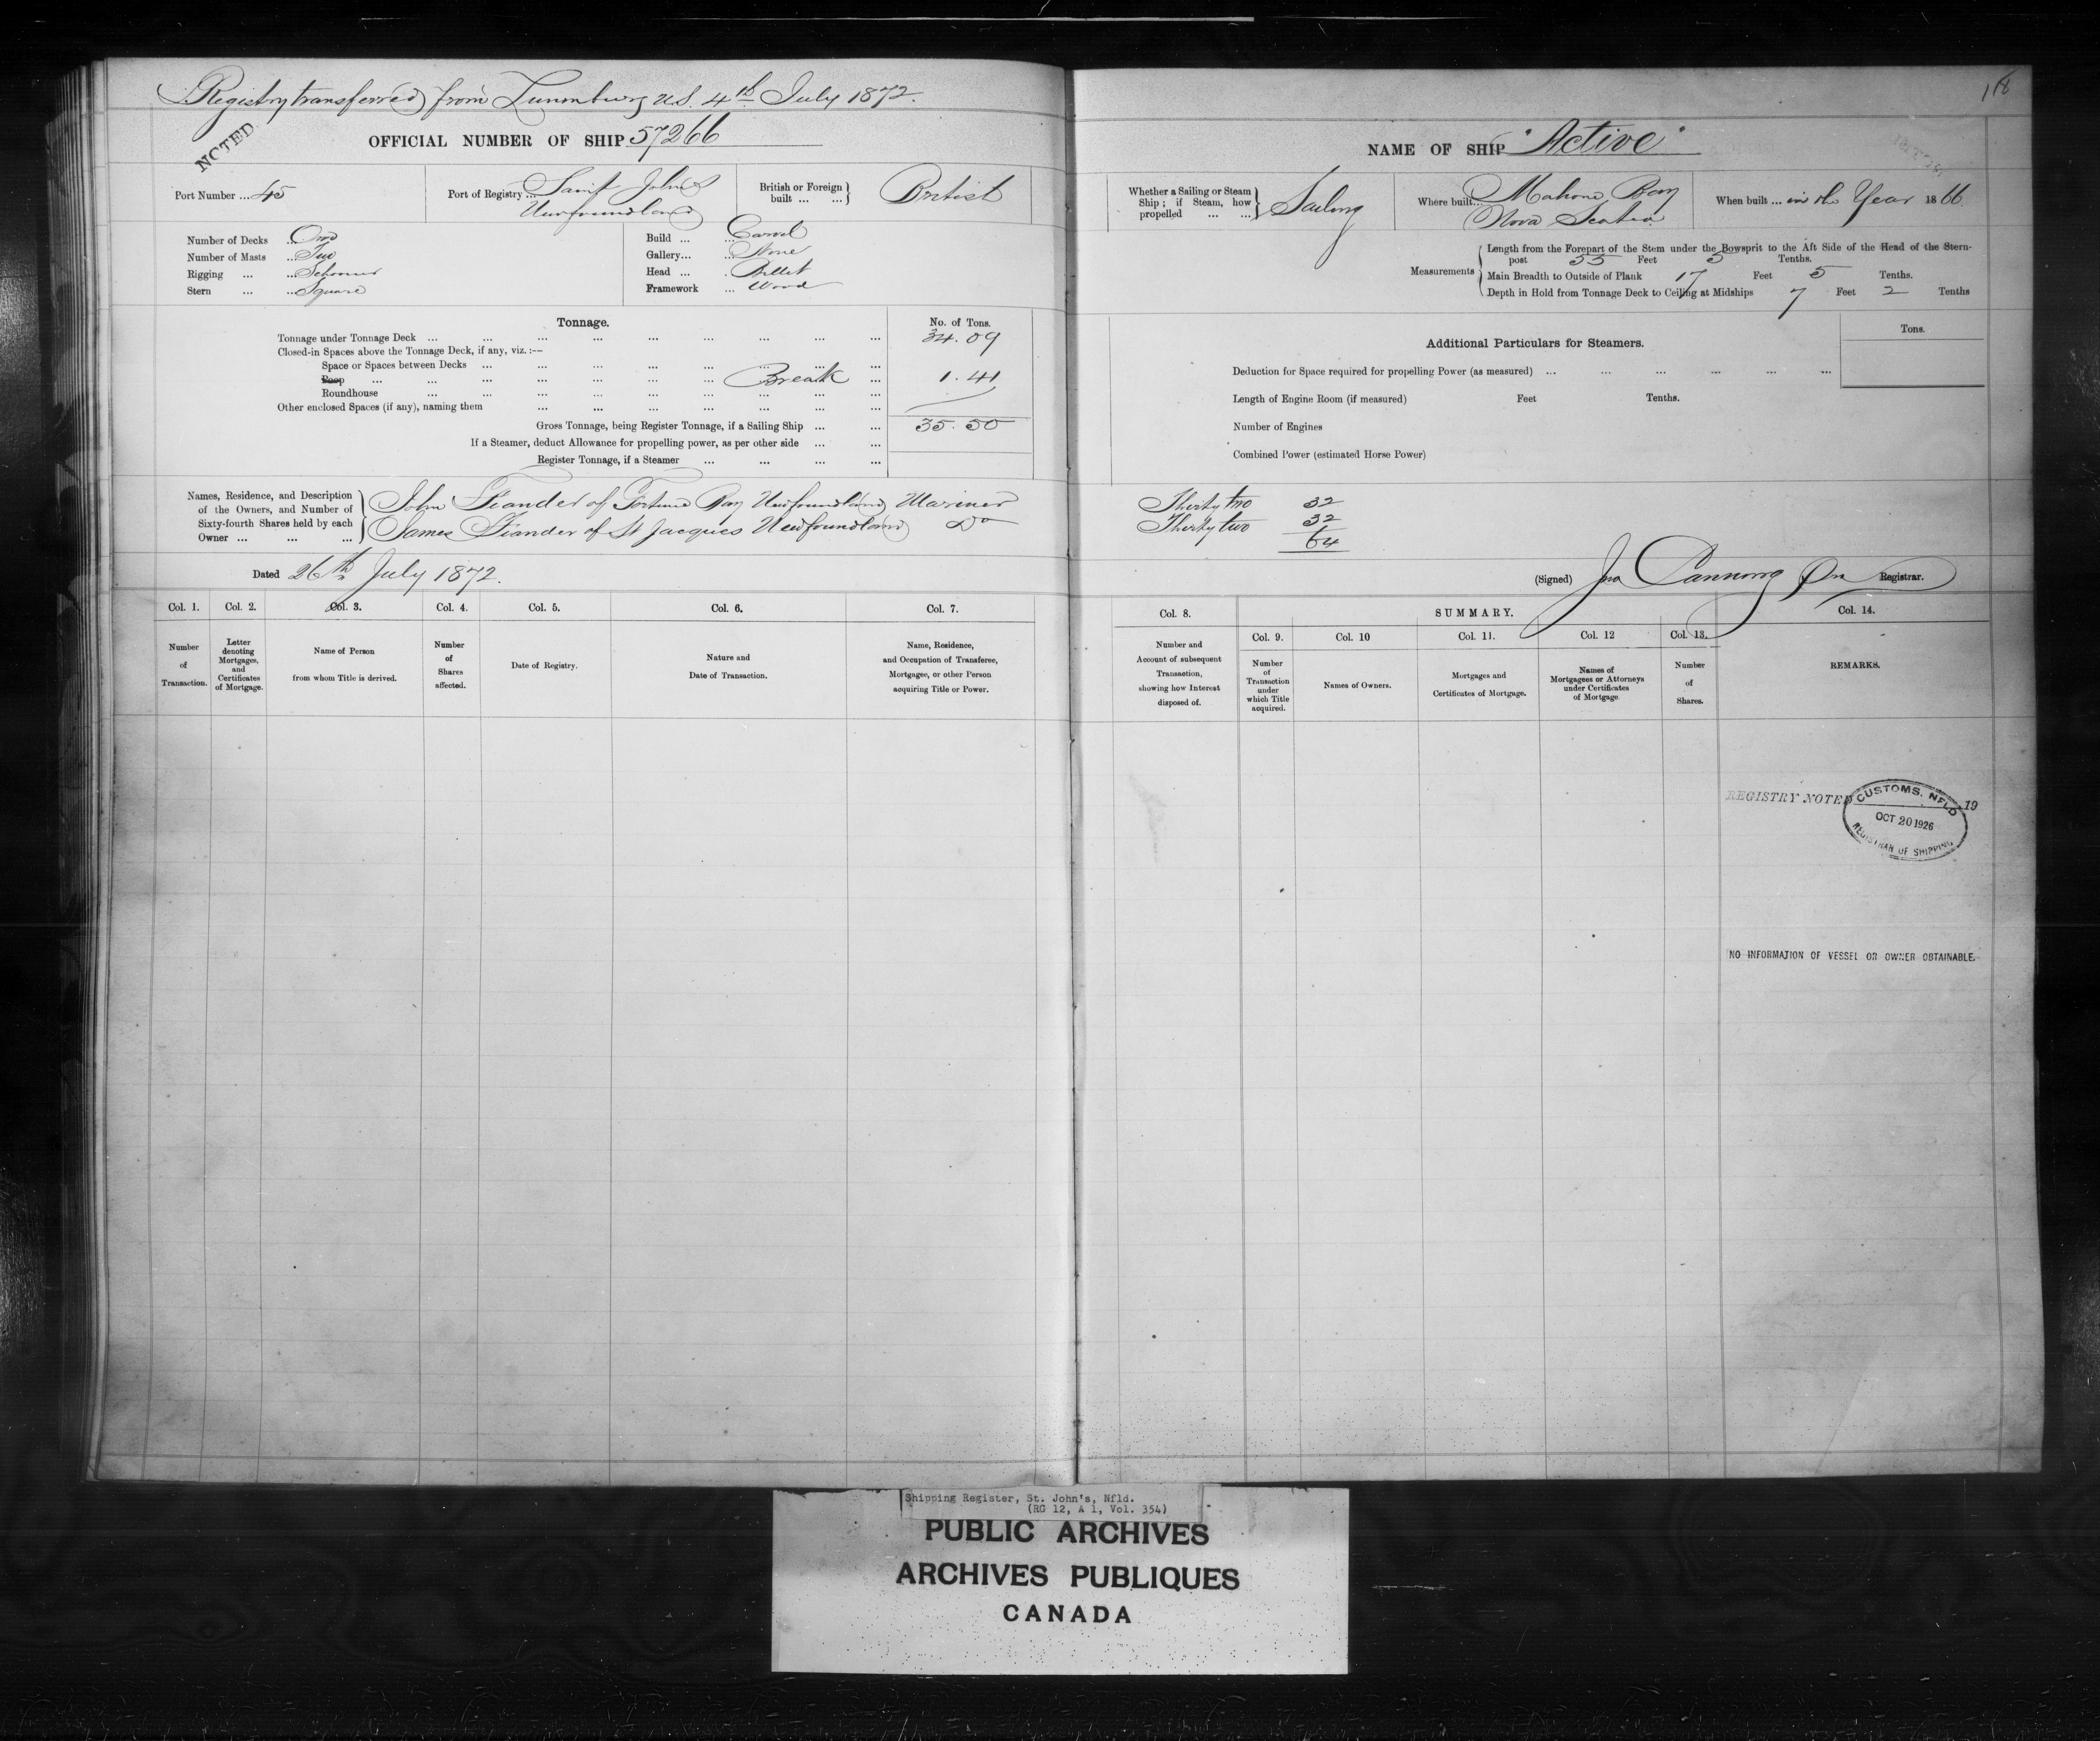 Registry transferred from Lunenburg N.S. 4th July 1872.
NOTED
OFFICIAL NUMBER OF SHIP 57266
Port Number ... 45
Port of Registry ... Saint John's
Newfoundland
British or Foreign
built ... ...
British
Number of Decks ... One
Number of Masts ... Two
Rigging ... ... Schooner
Stern ... ... Square
Build ... ... Carvel
Gallery... None
Head ... . Billet
Framework ... Wood
Tonnage.
No. of Tons.
Tonnage under Tonnage Deck ... ... ... ... ... ... ... ... 34.09
Closed-in Spaces above the Tonnage Deck, if any, viz.:—
Space or Spaces between Decks ... ... ... ... ... ... ... ...
Poop ... ... ... ... ... ... Break ... 1.41
Roundhouse ... ... ... ... ... ... ... ... ...
Other enclosed Spaces (if any), naming them ... ... ... ... ... ... ...
Gross Tonnage, being Register Tonnage, if a Sailing Ship ... ... 35.50
If a Steamer, deduct Allowance for propelling power, as per other side ... ...
Register Tonnage, if a Steamer ... ... ... ...
Names, Residence, and Description
of the Owners, and Number of
Sixty-fourth Shares held by each
Owner ... ... ...
John Fiander of Fortune Bay Newfoundland Mariner
James Fiander of St Jacques Newfoundland Do
Dated 26th July 1872.
Col. 1.
Number
of
Transaction.
Col. 2.
Letter
denoting
Mortgages,
and
Certificates
of Mortgage.
Col. 3.
Name of Person
from whom Title is derived.
Col. 4.
Number
of
Shares
affected.
Col. 5.
Date of Registry.
Col. 6.
Nature and
Date of Transaction.
Col. 7.
Name, Residence,
and Occupation of Transferee,
Mortgagee, or other Person
acquiring Title or Power.
NAME OF SHIP "Active"
Whether a Sailing or Steam
Ship; if Steam, how
propelled ... ...
Sailing
Where built... Mahone Bay
Nova Scotia
When built ... in the Year 1866
Measurements
Length from the Forepart of the Stem under the Bowsprit to the Aft Side of the Head of the Stern-
post 55 Feet 5 Tenths.
Main Breadth to Outside of Plank 17 Feet 5 Tenths.
Depth in Hold from Tonnage Deck to Ceiling at Midships 7 Feet 2 Tenths
Additional Particulars for Steamers.
Tons.
Deduction for Space required for propelling Power (as measured) ... ... ... ... ... ...
Length of Engine Room (if measured) Feet Tenths.
Number of Engines
Combined Power (estimated Horse Power)
Thirty two 32
Thirty two 32
64
(Signed) Jno Canning Registrar.
Col. 8.
Number and
Account of subsequent
Transaction,
showing how Interest
disposed of.
SUMMARY.
Col. 9.
Number
of
Transaction
under
which Title
acquired.
Col. 10
Names of Owners.
Col. 11.
Mortgages and
Certificates of Mortgage.
Col. 12
Names of
Mortgagees or Attorneys
under Certificates
of Mortgage.
Col. 13.
Number
of
Shares.
Col. 14.
REMARKS.
REGISTRY NOTED 19
CUSTOMS, NFLD
OCT 20 1926
REGISTRAR OF SHIPPING
NO INFORMATION OF VESSEL OR OWNER OBTAINABLE.
Shipping Register, St. John's, Nfld.
(RG 12, A 1, Vol. 354)
PUBLIC ARCHIVES
ARCHIVES PUBLIQUES
CANADA